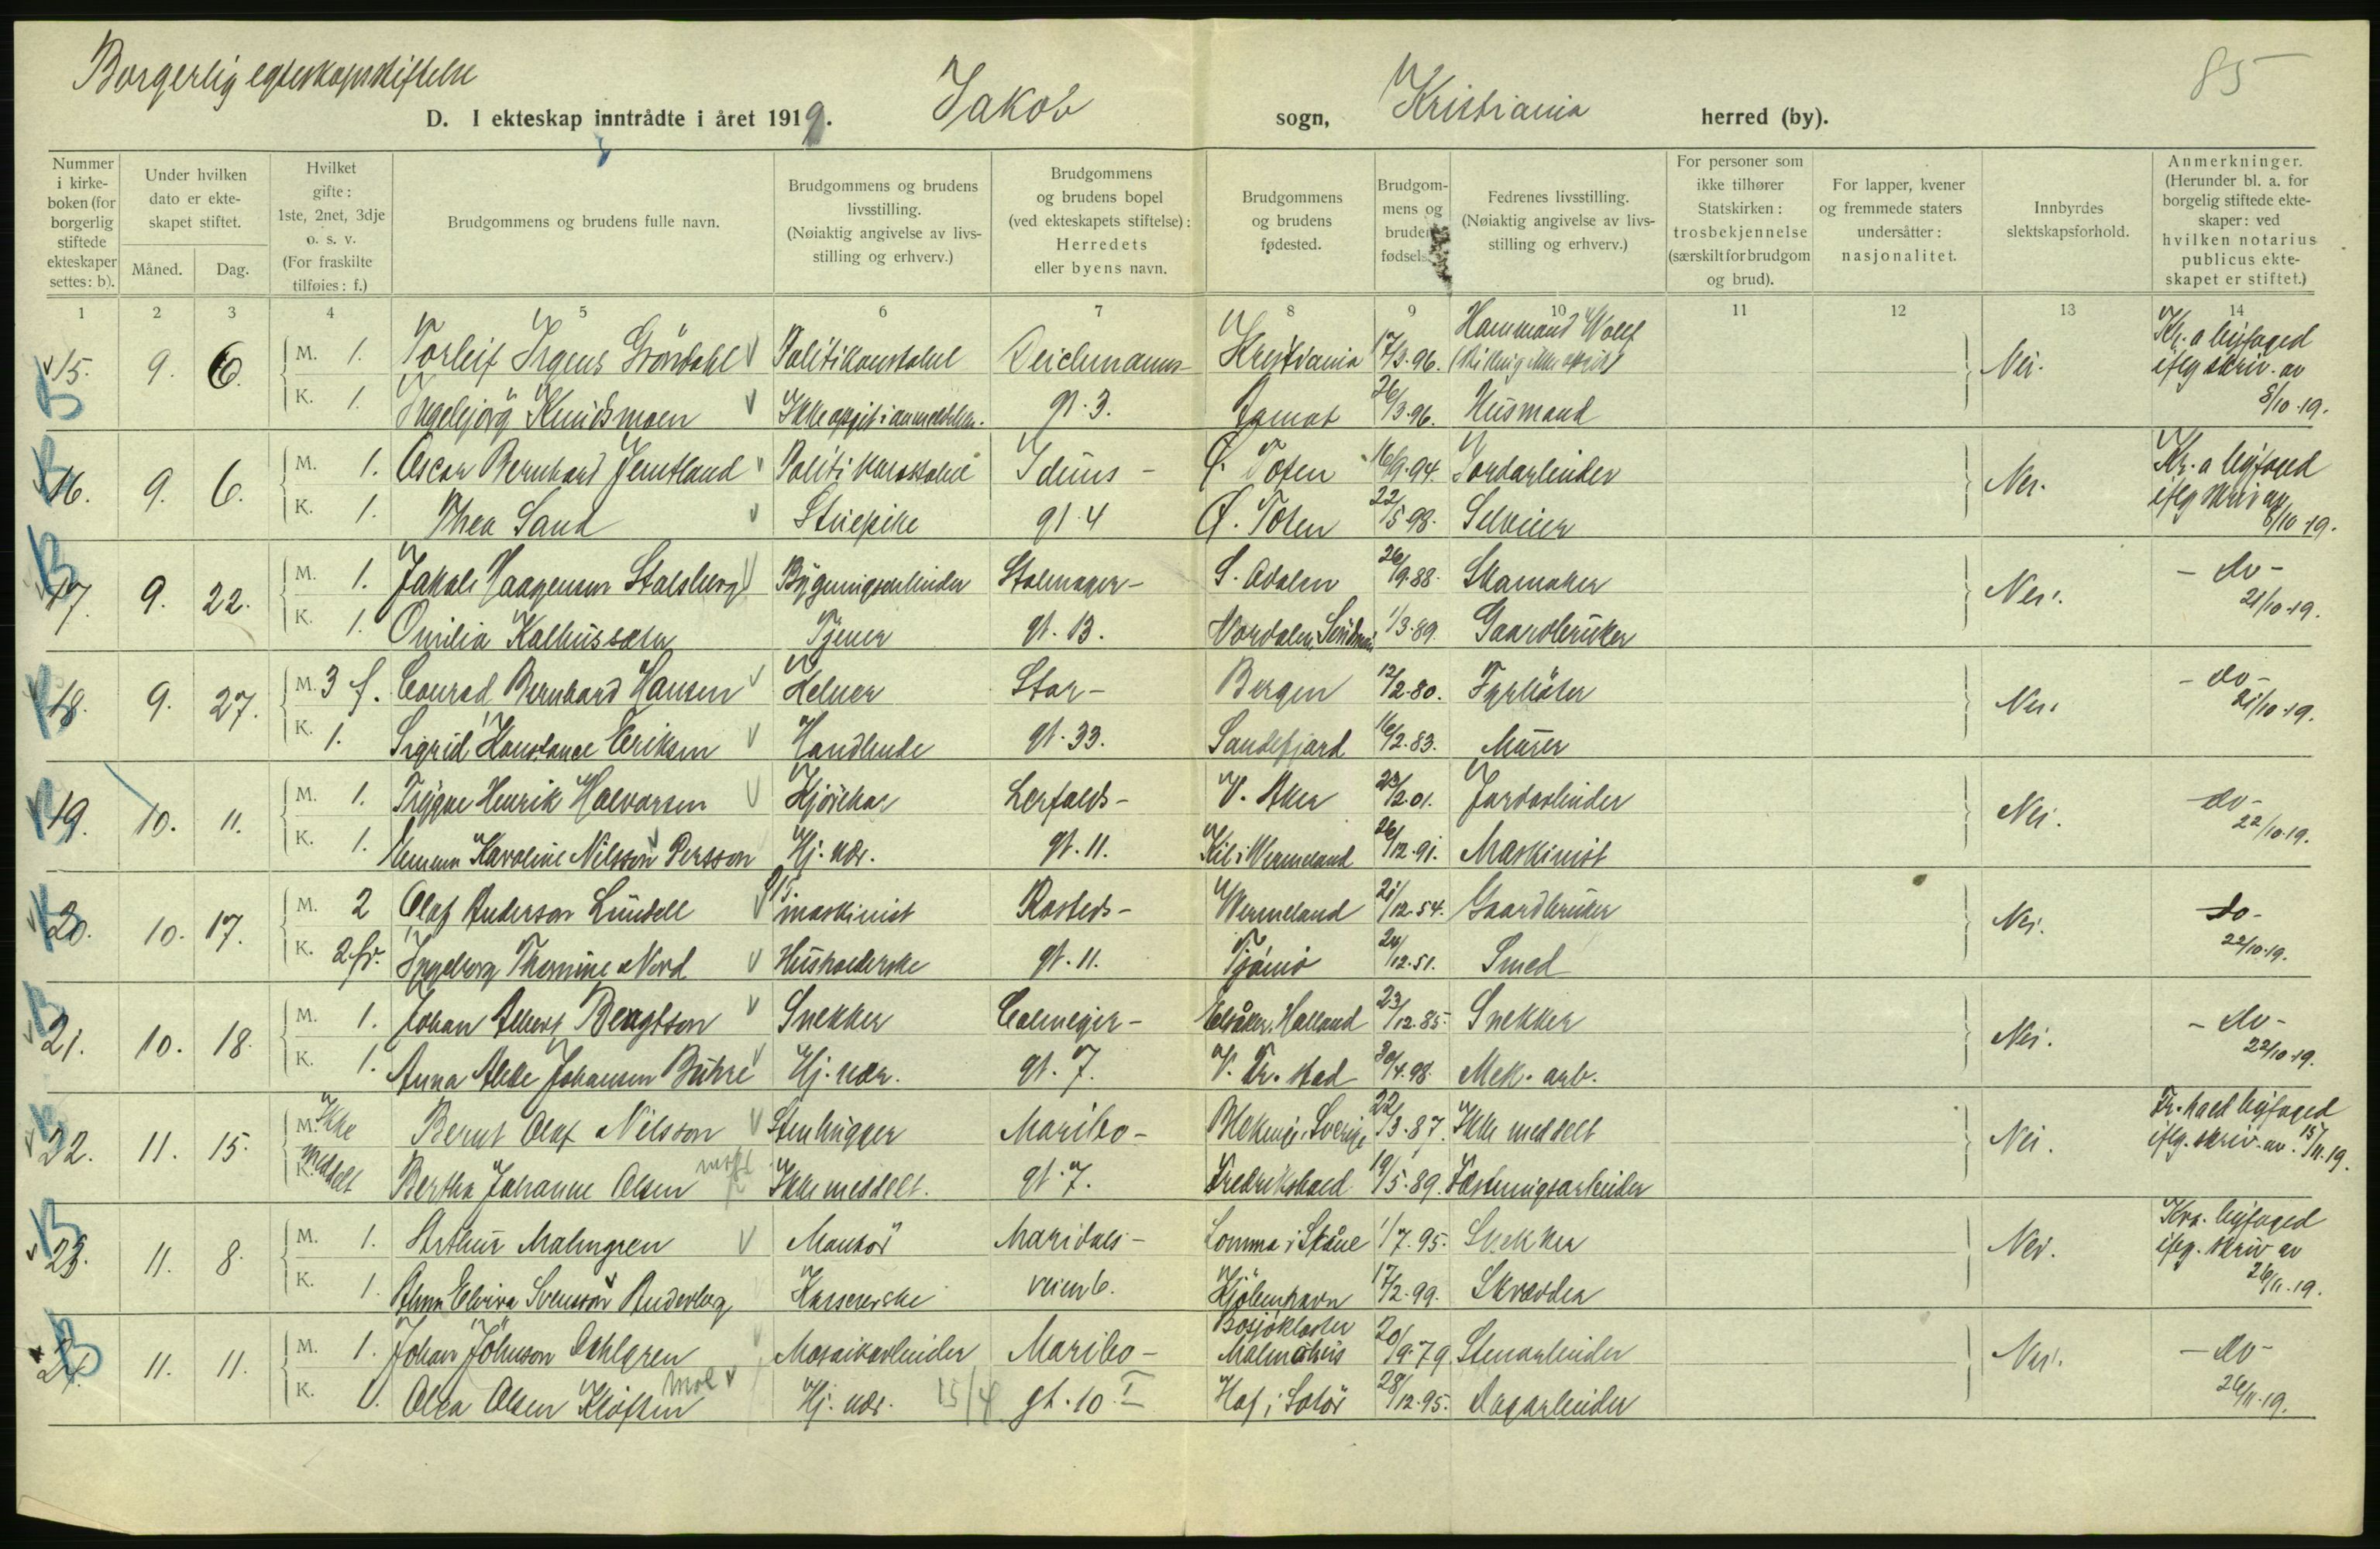 Borgerlig egteskapsstiftelse
85
D. I ekteskap inntrådte i året 1919. Jakob sogn, Kristiania herred (by).
Nummer i kirkeboken (for borgerlig stiftede ekteskaper settes: b).
Under hvilken dato er ekteskapet stiftet.
Måned. Dag.
Hvilket gifte: 1ste, 2net, 3dje o. s. v. (For fraskilte tilføies: f.)
Brudgommens og brudens fulle navn.
Brudgommens og brudens livsstilling. (Nøiaktig angivelse av livsstilling og erhverv.)
Brudgommens og brudens bopel (ved ekteskapets stiftelse): Herredets eller byens navn.
Brudgommens og brudens fødested.
Brudgommens og brudens fødsels
Fedrenes livsstilling. (Nøiaktig angivelse av livsstilling og erhverv.)
For personer som ikke tilhører Statskirken: trosbekjennelse (særskilt for brudgom og brud).
For lapper, kvener og fremmede staters undersåtter: nasjonalitet.
Innbyrdes slektskapsforhold.
Anmerkninger. (Herunder bl. a. for borgelig stiftede ekteskaper: ved hvilken notarius publicus ekteskapet er stiftet.)
1 2 3 4 5 6 7 8 9 10 11 12 13 14
15. 9. 6. M. 1. Torleif Irgens Gröndahl Politikonstabel Deichmanns- Kristiania 17/3.96. Hammand Wolff Nei. Kr.a byfoged iflg skriv. av 8/10.19.
K. 1. Ingebjörg Knudsmoen Ikke opgit i anmeldelsen. gt. 3. 26/3.96. Husmand
16. 9. 6. M. 1. Oscar Bernhard Jemtland Politikonstabel Iduns- Ø. Toten 16/9.94. Jordarbeider Nei. Kr.a byfoged iflg skriv av 8/10.19.
K. 1. Thea Sand Stuepike gt. 4 Ø. Toten 22/5.98. Selveier
17. 9. 22. M. 1. Jakob Haagensen Stalsberg Bygningsarbeider Stolmager- S. Odalen 26/9.88. Skomaker Nei. -do- 21/10.19.
K. 1. Omilia Kalhussæter Tjener gt. 13. Nordalen, Söndmör 1/3.89. Gaardbruker
18. 9. 27. M. 3 f. Conrad Bernhard Hansen Kelner Stor- Bergen 12/2.80. Fyrböter Nei. -do- 21/10.19.
K. 1. Sigrid Konstance Eriksen Handlende gt. 33. Sandefjord 16/2.83. Murer
19. 10. 11. M. 1. Trygve Henrik Halvorsen Kjörekar Lerfalds- V. Aker 23/2.01. Jordarbeider Nei. -do- 22/10.19.
K. 1. Karoline Nilsson Persson Hj. vær. gt. 11. Kil i Wermeland 26/12.91. Maskinist
20. 10. 17. M. 2 Olaf Anderson Lundell maskinist Rosteds- Wermeland 21/12.54. Gaardbruker Nei. -do- 22/10.19.
K. 2 fr. Ingeborg Thomine Nord Husholderske gt. 11. Tjömö 24/12.51. Smed
21. 10. 18. M. 1. Johan Albert Bengtsson Snekker Calmeyer- Elvåker, Halland 23/12.85. Snekker Nei. -do- 22/10.19.
K. 1. Anna Alide Johansen Buhre Hj. vær. gt. 7. V. Fr.stad 30/4.98. Mek. arb.
22. 11. 15. M. Ikke Bernt Olaf Nilsson Stenhugger Maribo- Blekinge, Sverige 22/3.87. Ikke meddelt Nei. Fr.hald byfoged iflg. skriv. av 15/11.19.
K. meddelt Bertha Johanne Olsen Ikke meddelt. gt. 7. Fredrikshald 19/5.89. Fæstningsarbeider
23. 11. 8. M. 1. Arthur Malmgren Montör Maridals- Lomma i Skåne 1/7.95. Snekker Nei. Kra. byfoged iflg. skriv av 26/11.19.
K. 1. Anna Elvira Svensson Anderberg Kassererske veien 6. Kjöbenhavn 17/2.99. Skrædder
24. 11. 11. M. 1. Johan Jönsson Dahlgren Mosaikarbeider Maribo- Bosjökloster Malmöhus 20/9.79. Stenarbeider Nei. -do- 26/11.19.
K. 1. Olea Olsen Kloften Hj. vær. 15/4 gt. 10 I Hof i Solör 28/12.95. Dagarbeider